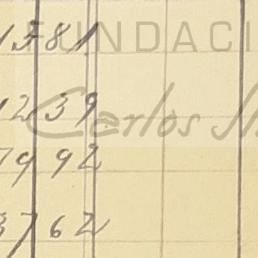 FUNDACI
1581.
1239.
7992
3762
Carlos